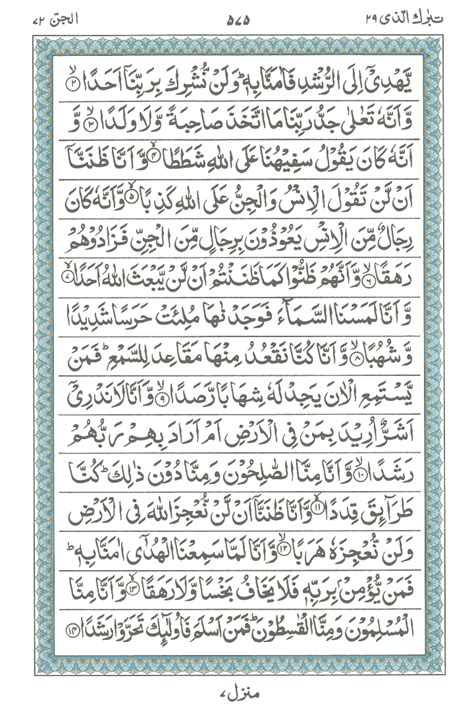 تبٰرك الّذی ٢٩ ٥٧٥ الجنّ ٧٢
يَّهْدِيْٓ اِلَى الرُّشْدِ فَاٰمَنَّا بِهٖ ؕ وَلَنْ نُّشْرِكَ بِرَبِّنَاۤ اَحَدًا ۙ﴿٢﴾
وَّ اَنَّهٗ تَعٰلٰى جَدُّ رَبِّنَا مَا اتَّخَذَ صَاحِبَةً وَّ لَا وَلَدًا ۙ﴿٣﴾ وَّ
اَنَّهٗ كَانَ يَقُوْلُ سَفِيْهُنَا عَلَى اللّٰهِ شَطَطًا ۙ﴿٤﴾ وَّ اَنَّا ظَنَنَّاۤ
اَنْ لَّنْ تَقُوْلَ الْاِنْسُ وَ الْجِنُّ عَلَى اللّٰهِ كَذِبًا ۙ﴿٥﴾ وَّ اَنَّهٗ كَانَ
رِجَالٌ مِّنَ الْاِنْسِ يَعُوْذُوْنَ بِرِجَالٍ مِّنَ الْجِنِّ فَزَادُوْهُمْ
رَهَقًا ۙ﴿٦﴾ وَّ اَنَّهُمْ ظَنُّوْا كَمَا ظَنَنْتُمْ اَنْ لَّنْ يَّبْعَثَ اللّٰهُ اَحَدًا ۙ﴿٧﴾
وَّ اَنَّا لَمَسْنَا السَّمَآءَ فَوَجَدْنٰهَا مُلِئَتْ حَرَسًا شَدِيْدًا
وَّ شُهُبًا ۙ﴿٨﴾ وَّ اَنَّا كُنَّا نَقْعُدُ مِنْهَا مَقَاعِدَ لِلسَّمْعِ ؕ فَمَنْ
يَّسْتَمِعِ الْاٰنَ يَجِدْ لَهٗ شِهَابًا رَّصَدًا ۙ﴿٩﴾ وَّ اَنَّا لَا نَدْرِيْۤ
اَشَرٌّ اُرِيْدَ بِمَنْ فِى الْاَرْضِ اَمْ اَرَادَ بِهِمْ رَبُّهُمْ
رَشَدًا ۙ﴿١٠﴾ وَّ اَنَّا مِنَّا الصّٰلِحُوْنَ وَ مِنَّا دُوْنَ ذٰلِكَ ؕ كُنَّا
طَرَآئِقَ قِدَدًا ۙ﴿١١﴾ وَّ اَنَّا ظَنَنَّاۤ اَنْ لَّنْ نُّعْجِزَ اللّٰهَ فِى الْاَرْضِ
وَلَنْ نُّعْجِزَهٗ هَرَبًا ۙ﴿١٢﴾ وَّ اَنَّا لَمَّا سَمِعْنَا الْهُدٰۤى اٰمَنَّا بِهٖ ؕ
فَمَنْ يُّؤْمِنْۢ بِرَبِّهٖ فَلَا يَخَافُ بَخْسًا وَّ لَا رَهَقًا ۙ﴿١٣﴾ وَّ اَنَّا مِنَّا
الْمُسْلِمُوْنَ وَ مِنَّا الْقٰسِطُوْنَ ؕ فَمَنْ اَسْلَمَ فَاُولٰٓئِكَ تَحَرَّوْا رَشَدًا ﴿١٤﴾
منزل ٧